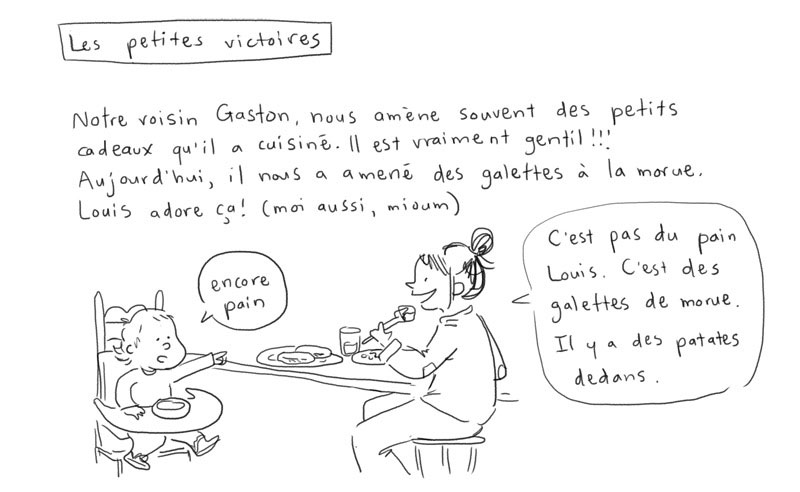 Les petites victoires
Notre voisin Gaston, nous amène souvent des petits
cadeaux qu'il a cuisiné. Il est vraiment gentil!!!
Aujourd'hui, il nous a amené des galettes à la morue.
Louis adore ça! (moi aussi, mioum)
encore
pain
C'est pas du pain
Louis. C'est des
galettes de morue.
Il y a des patates
dedans.